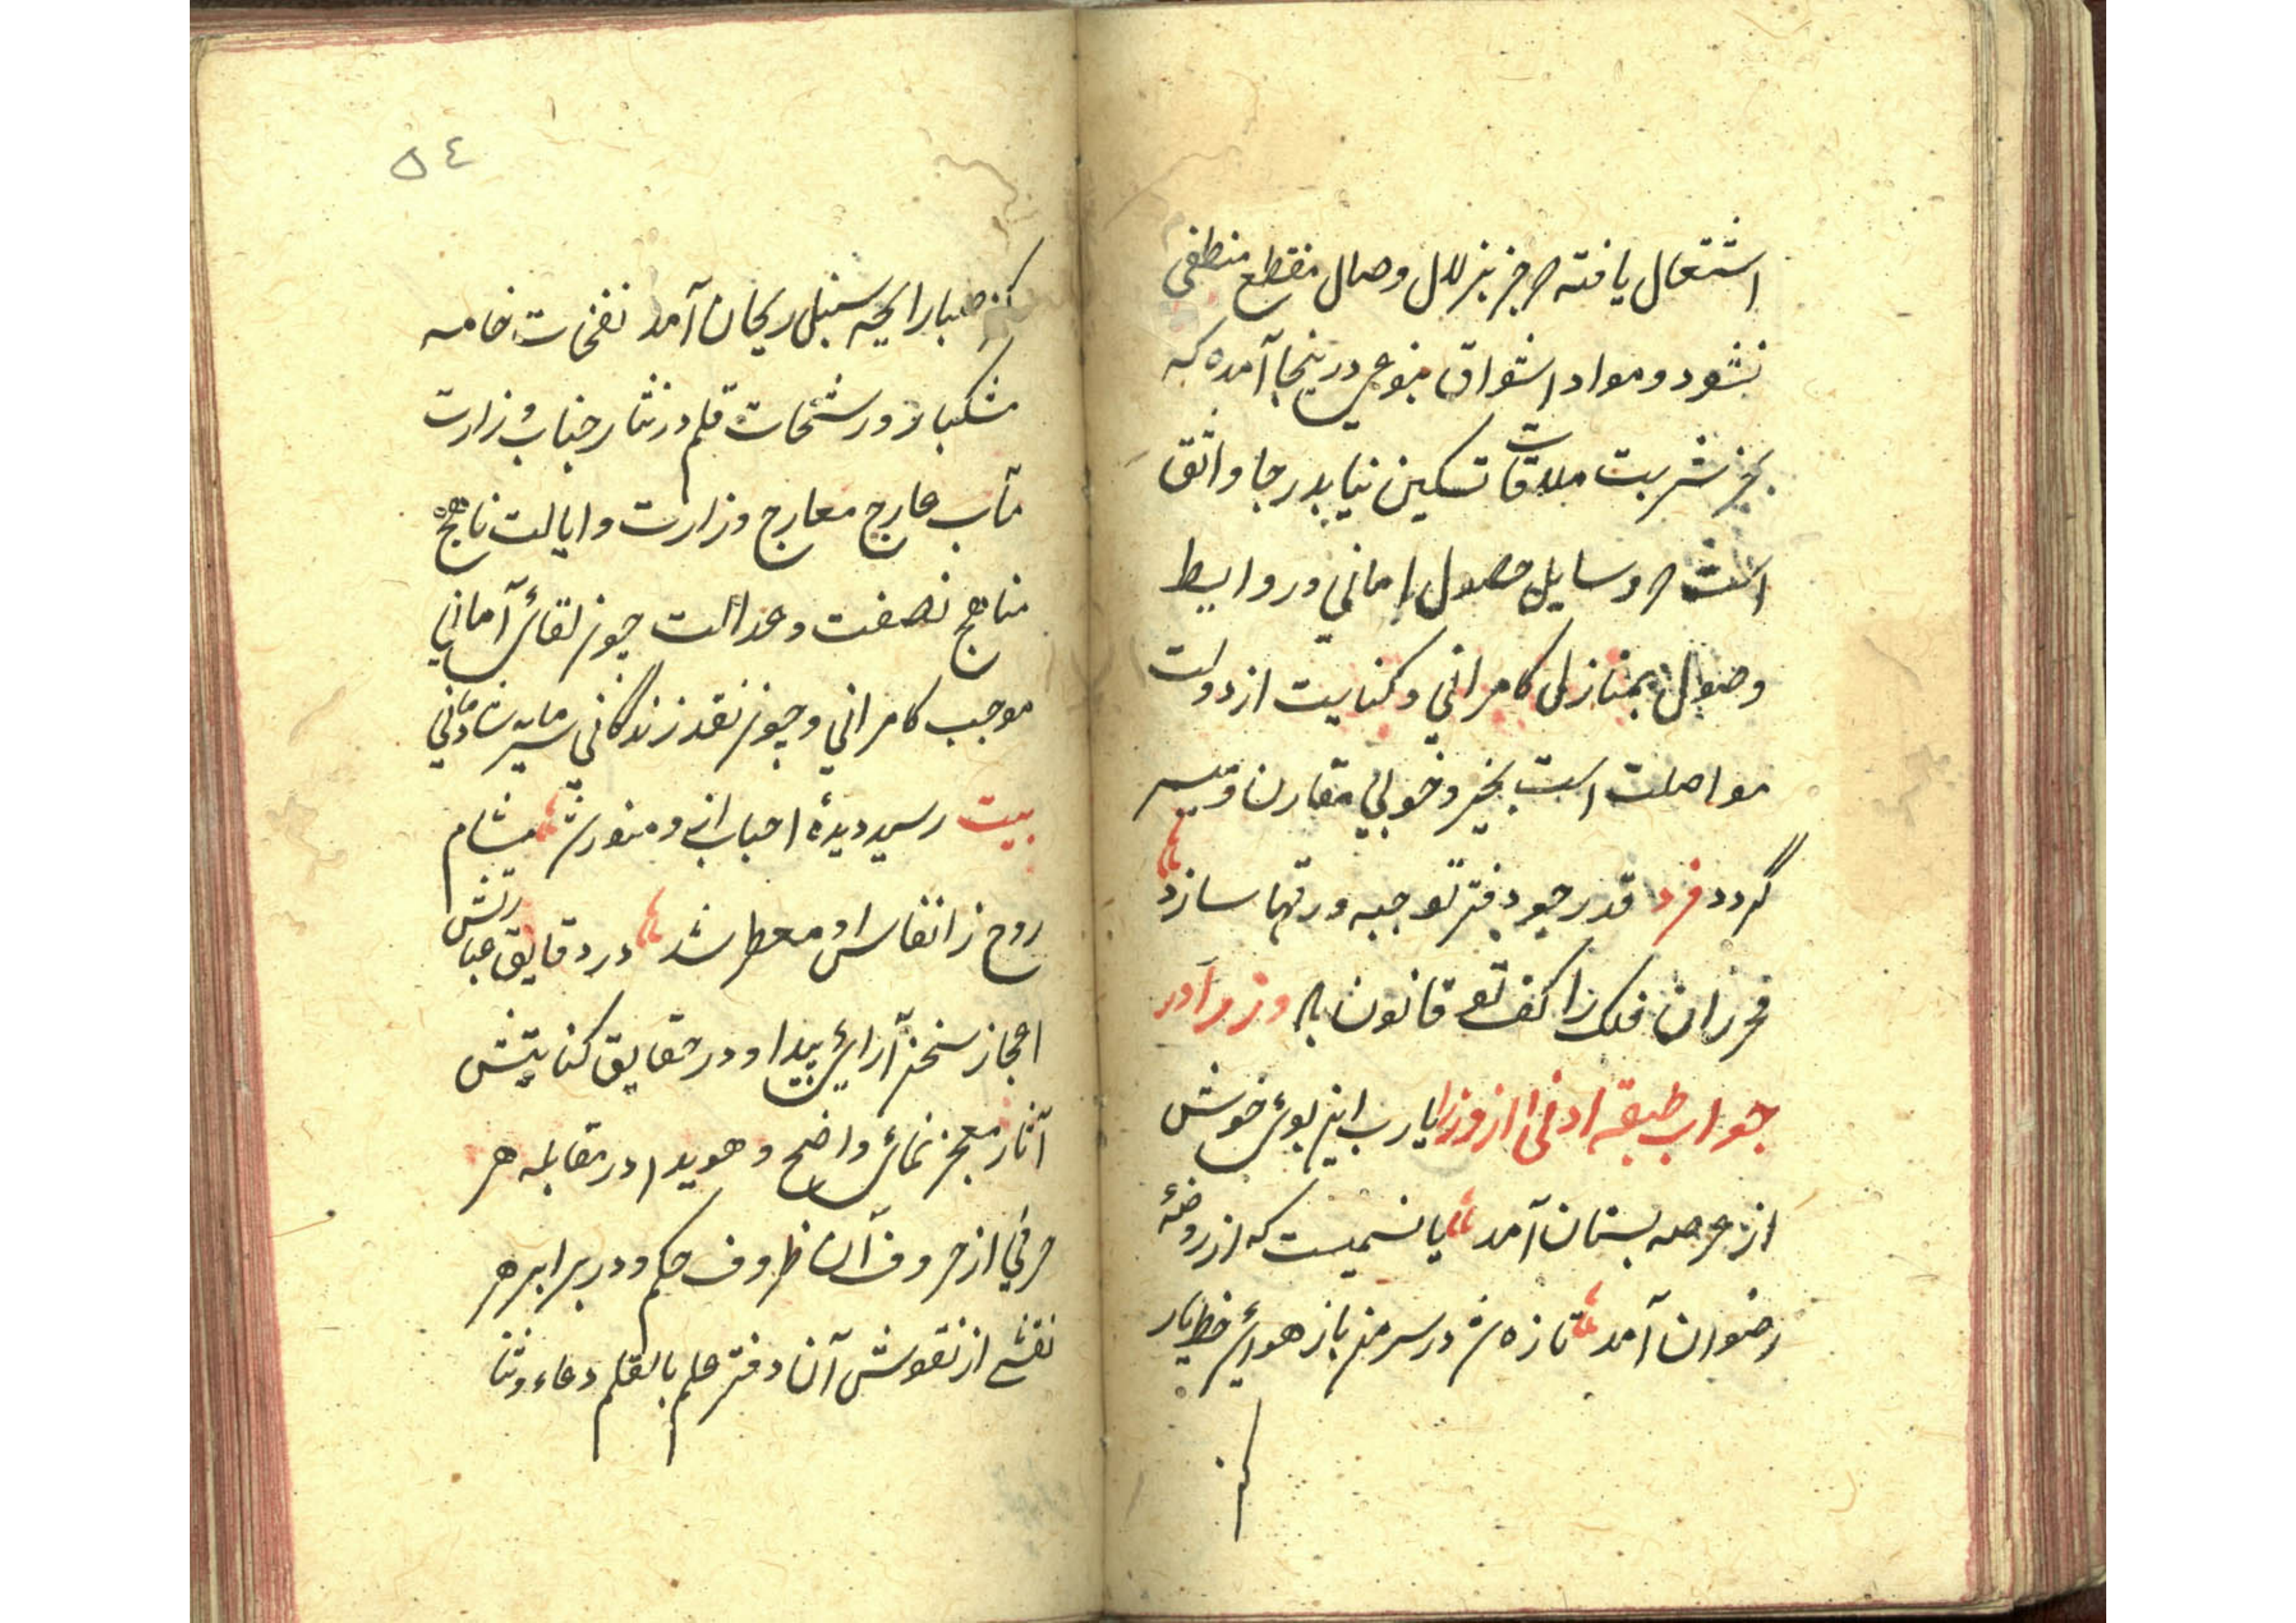 اشتعال یافته جز بزلال وصال مقطع منطفی
نشود و مواد اشواق بنوعی درینجا آمده که
بجز شربت ملاقات تسکین نیابد رجا واثق
است وسایل حصول امانی و روابط
وصول بمنازل کامرانی و کنایت از دولت
مواصلت است بخیر و خوبی مقارن و میسر
گردد فرد قدر چو دفتر توجیه ورقها سازد
خرزان فلک را کف تو قانون باد
جواب طبقه ادنی از وزرا یا رب این بوی خوش
از عرصه بستان آمد یا نسمیست که از روضهٔ
رضوان آمد تازه شد در سر من باز هوای خط یار
کز
٥٤
کز صبا رایحه سنبل ریحان آمد نفخات خامه
مشکبار و رشحات قلم درنثار جناب وزارت
مآب عارج معارج وزارت و ایالت ناهج
مناهج نصفت و عدالت چون لقای آمانی
موجب کامرانی و چون نقد زندگانی سرمایه شادمانی
بیت رسید دیدهٔ احباب ازو منور شد مشام
روح ز انفاس او معطر شد در دقایق عبارتش
اعجاز سخن آرایی پیدا و در حقایق کنایتش
آثار معجز نمای واضح و هویدا در مقابله هر
حرفی از حروف آن ظروف حکم و در برابر هر
نقشی از نقوش آن دفتر علم بالقلم دعاء و ثنا